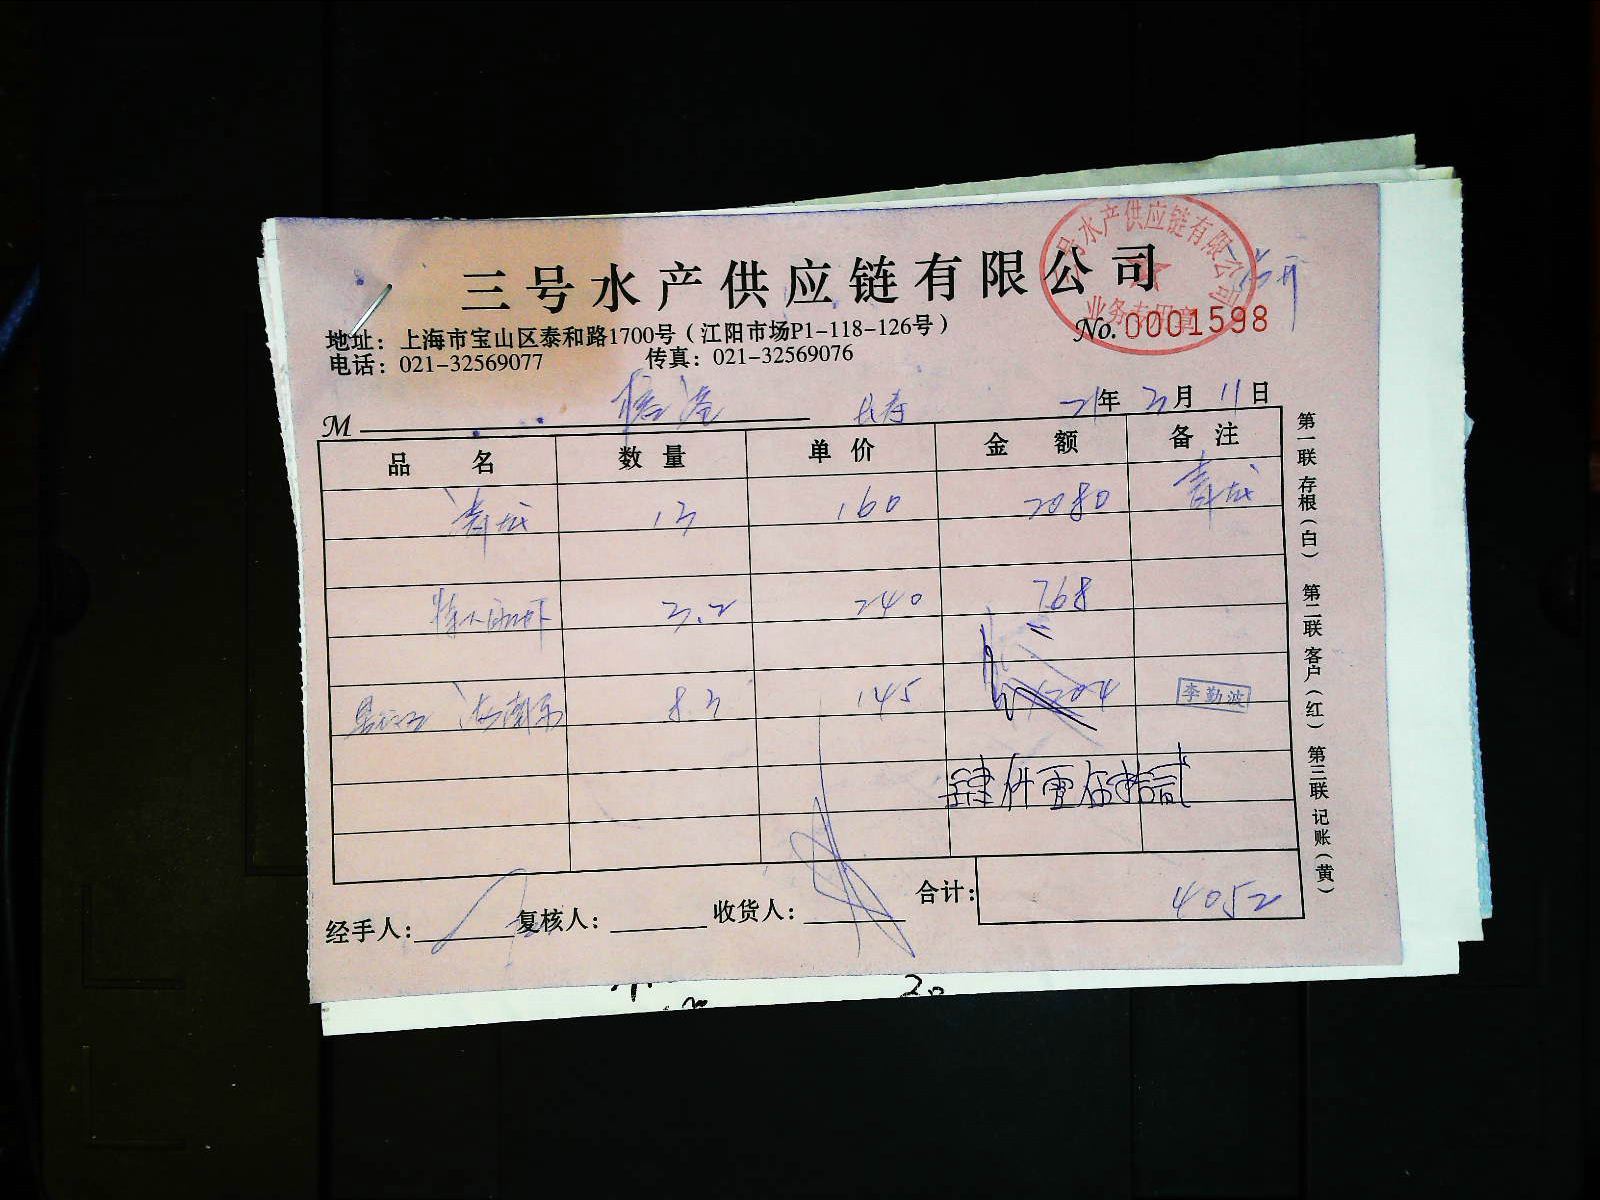 三号水产供应链有限公司
号水产供应链有限公司
业务专用章
No. 0001598
地址：上海市宝山区泰和路1700号（江阳市场P1-118-126号）
电话：021-32569077 传真：021-32569076
M 长寿 21年 3月 11日
品名 数量 单价 金额 备注
青龙 13 160 2080 青龙
3.2 240 768
8.3 145 1204 李勤波
肆仟零伍拾贰
合计： 4052
经手人： 复核人： 收货人：
第一联 存根（白） 第二联 客户（红） 第三联 记账（黄）